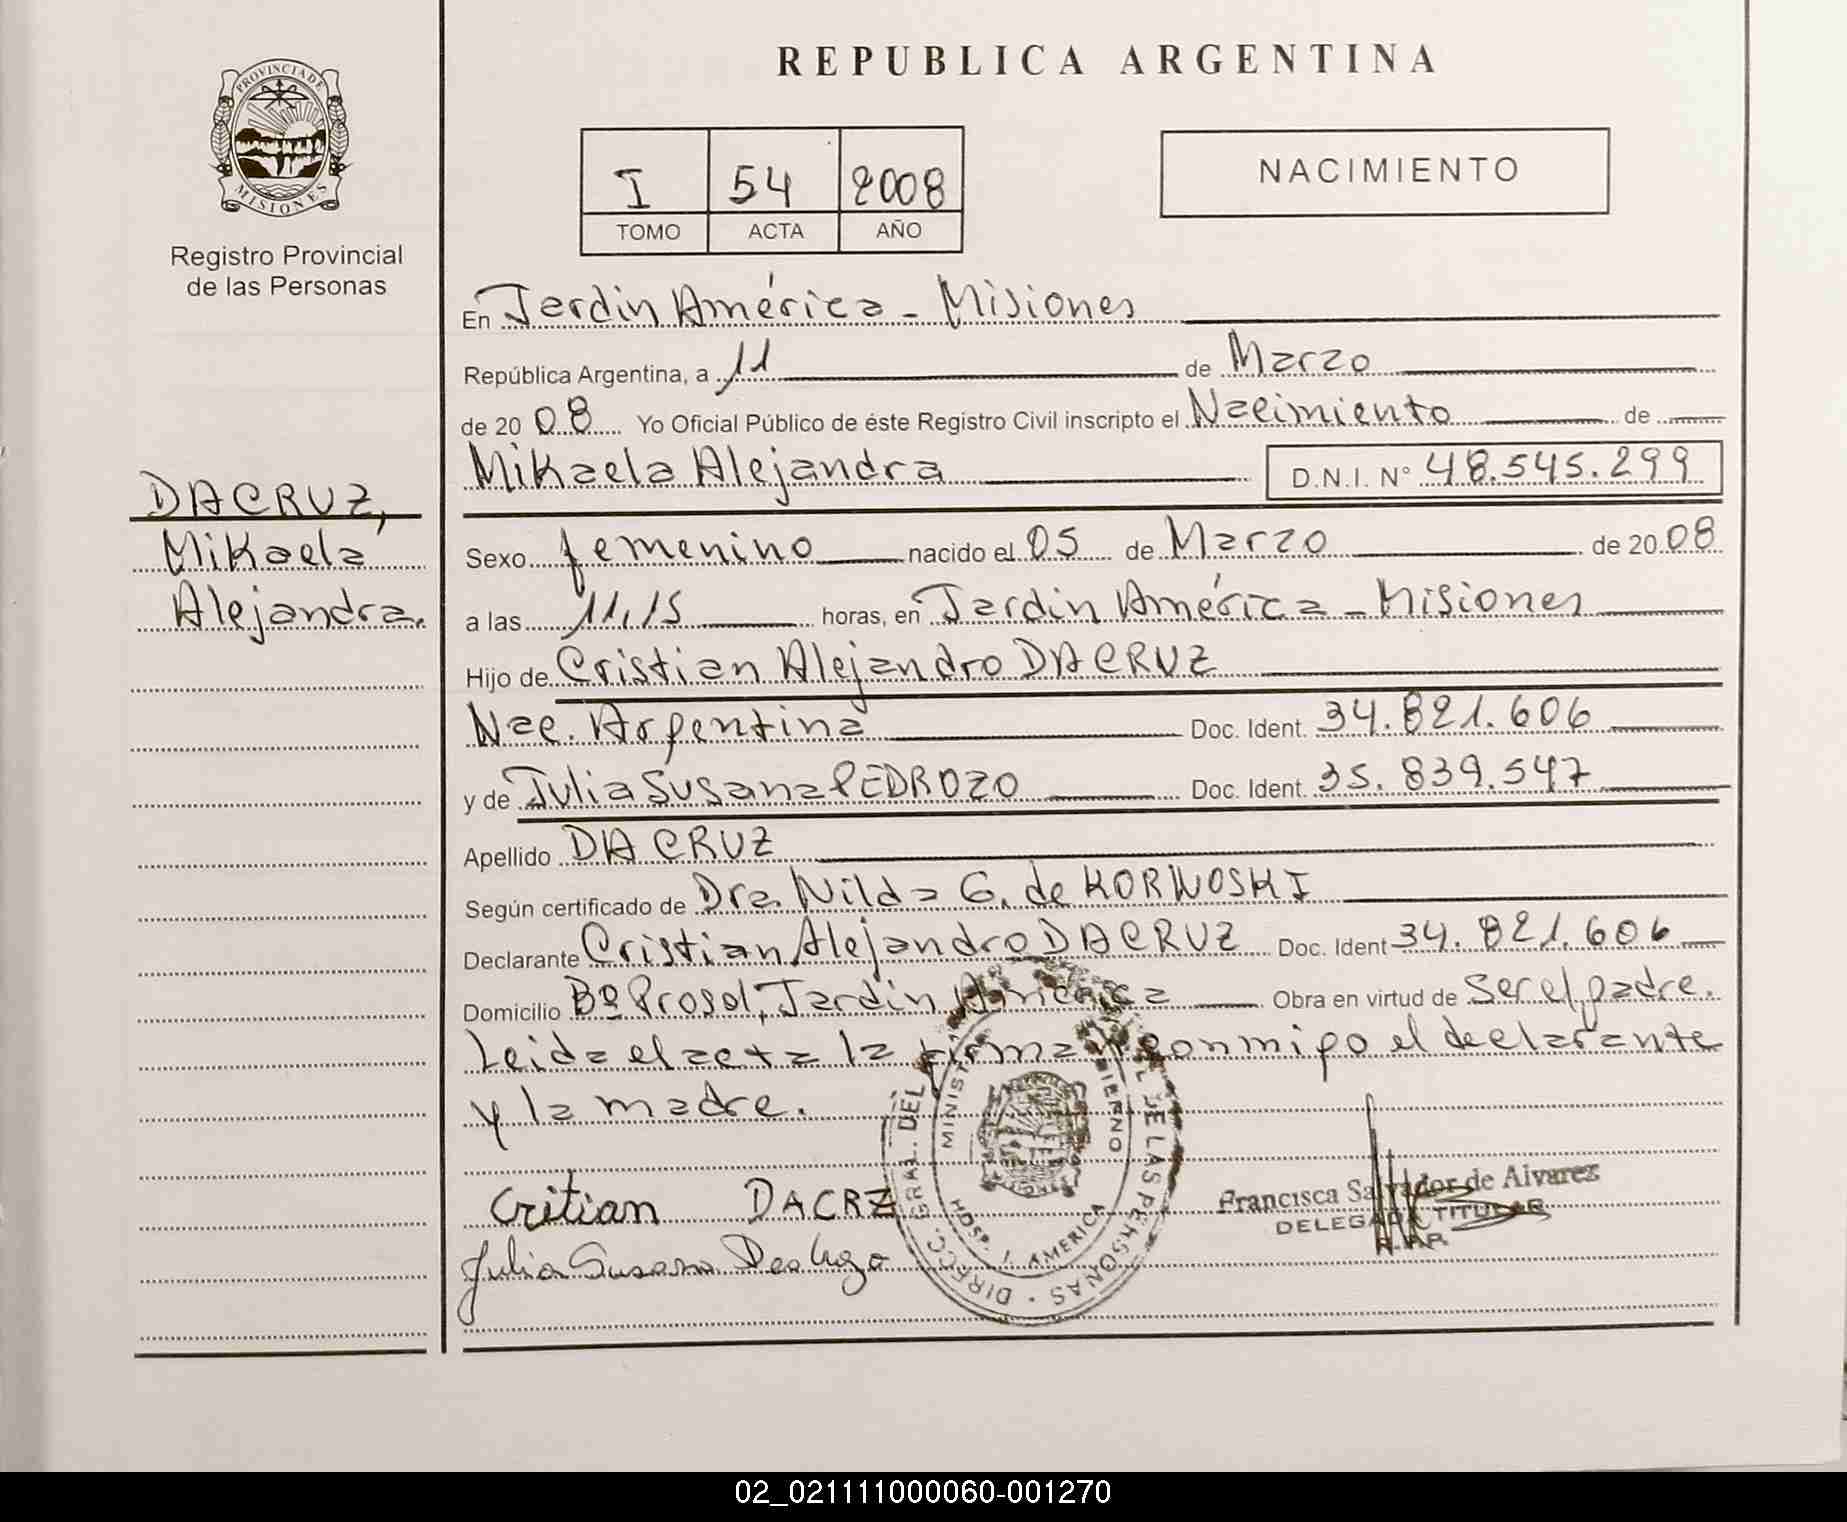 REPUBLICA ARGENTINA
PROVINCIA DE
MISIONES
Registro Provincial
de las Personas
I 54 2008
TOMO ACTA AÑO
NACIMIENTO
En Jardin América - Misiones
República Argentina, a 11 de Marzo
de 20 08 Yo Oficial Público de éste Registro Civil inscripto el Nacimiento de
Mikaela Alejandra D.N.I. N° 48.545.299
DACRUZ,
Mikaela
Alejandra.
Sexo femenino nacido el 05 de Marzo de 20 08
a las 11,15 horas, en Jardin América - Misiones
Hijo de Cristian Alejandro DACRUZ
Nac. Argentina Doc. Ident. 34.821.606
y de Julia Susana PEDROZO Doc. Ident. 35.839.547
Apellido DACRUZ
Según certificado de Dra. Nilda G. de KORNOSKI
Declarante Cristian Alejandro DACRUZ Doc. Ident 34.821.606
Domicilio Bº Prosol, Jardin América Obra en virtud de ser el padre.
Leida el acta la firman conmigo el declarante
y la madre.
Critian DACRZ
Julia Susana
Francisca Salvador de Alvarez
DELEGADA TITULAR
R.P.P.
DIRECC. GRAL. DEL DE LAS PERSONAS
MINIST
HOSP. J. AMERICA
02_021111000060-001270